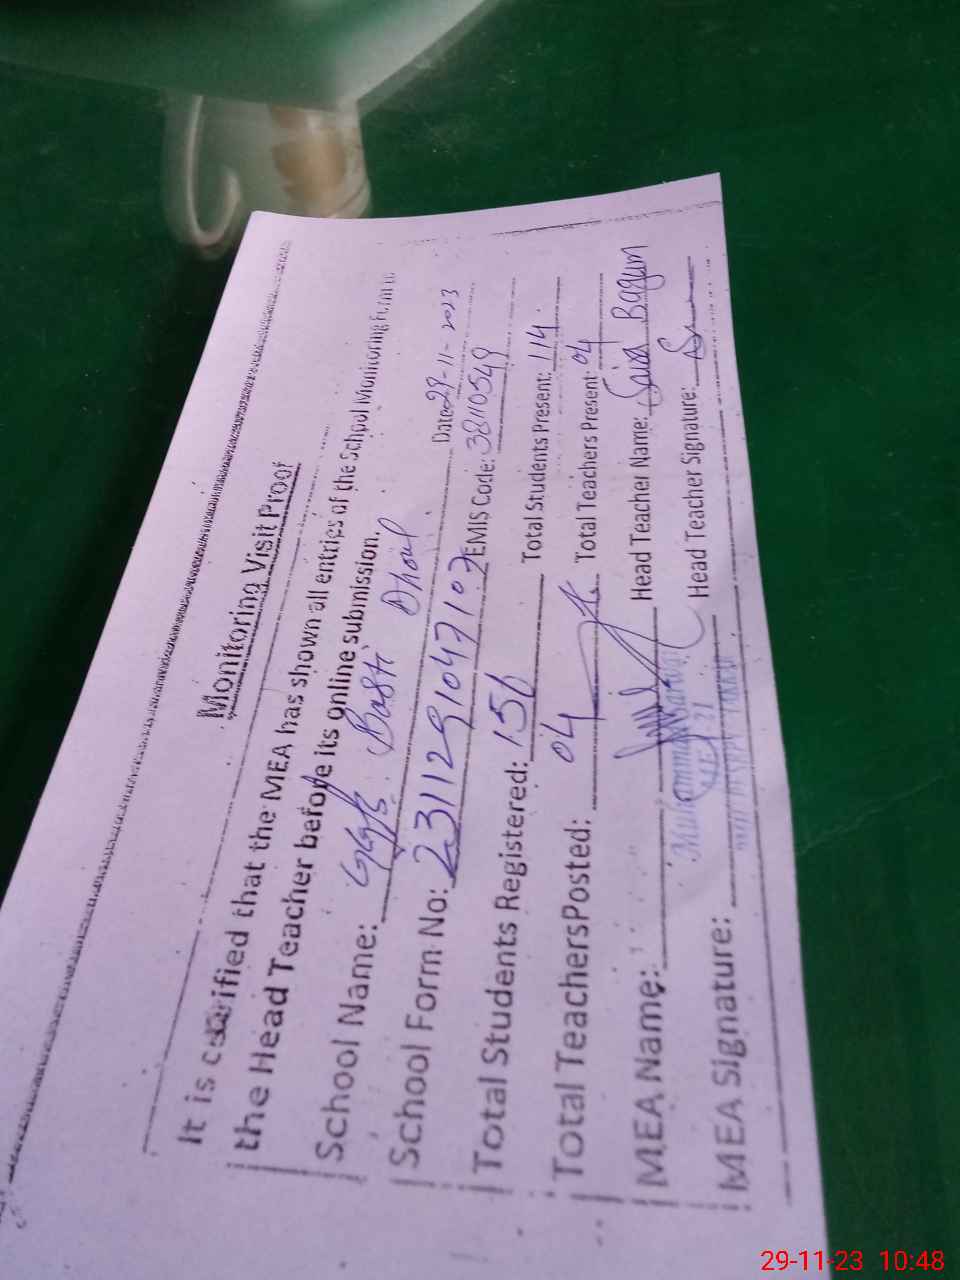 Monitoring Visit Proof
It is certified that the MEA has shown all entries of the School Monitoring Form to
the Head Teacher before its online submission.
School Name: Basti Dhoul Date: 29-11-2023
School Form No: 2311291047107 EMIS Code: 38110549
Total Students Registered: 156 Total Students Present: 114
Total Teachers Posted: 04 Total Teachers Present: 04
MEA Name: Head Teacher Name: Saira Bagum
MEA Signature: Muhammad Head Teacher Signature:
29-11-23 10:48